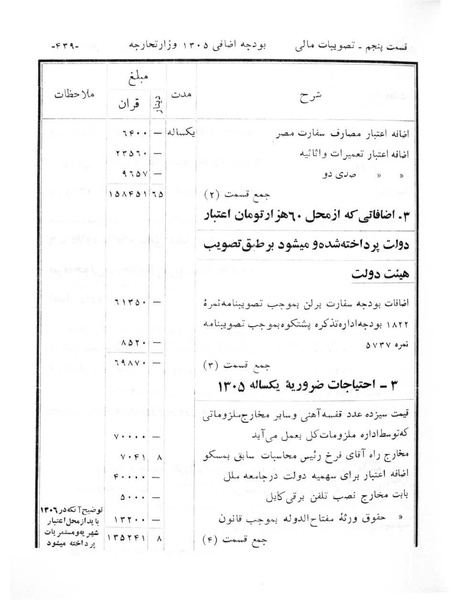 قسمت پنجم ـ تصویبات مالی   بودجه اضافی ۱۳۰۵ وزارتخارجه   -۴۳۹-
شرح   مدت   مبلغ   ملاحظات
دینار   قران
اضافه اعتبار مصارف سفارت مصر   یکساله   —   ۶۴۰۰
اضافه اعتبار تعمیرات و اثاثیه   —   ۲۳۵۶۰
»   »   صدی دو   —   ۹۶۵۷
جمع قسمت (۲)   ۶۵   ۱۵۸۴۵۱
۳۰ اضافاتی که از محل ۶۰ هزار تومان اعتبار
دولت پرداخته شده و میشود بر طبق تصویب
هیئت دولت
اضافات بودجه سفارت برلن بموجب تصویبنامه نمرهٔ   —   ۶۱۳۵۰
۱۸۲۲ بودجه اداره تذکره پشتکوه بموجب تصویبنامه
نمره ۵۷۳۷   —   ۸۵۲۰
جمع قسمت (۳)   —   ۶۹۸۷۰
۳ ـ احتیاجات ضروریهٔ یکساله ۱۳۰۵
قیمت سیزده عدد قفسه آهنی و سایر مخارج ملزوماتی
که توسط اداره ملزومات کل بعمل می آید   —   ۷۰۰۰۰
مخارج راه آقای فرخ رئیس محاسبات سابق بمسکو   ۸   ۷۰۴۱
اضافه اعتبار برای سهمیه دولت در جامعه ملل   —   ۴۰۰۰۰
بابت مخارج نصب تلفن برقی کابل   —   ۵۰۰۰
»   حقوق ورثهٔ مفتاح الدوله بموجب قانون   —   ۱۳۲۰۰
جمع قسمت (۴)   ۸   ۱۳۵۲۴۱
توضیح آنکه در ۱۳۰۶
باید از محل اعتبار
شهریه و مستمریات
پرداخته میشود